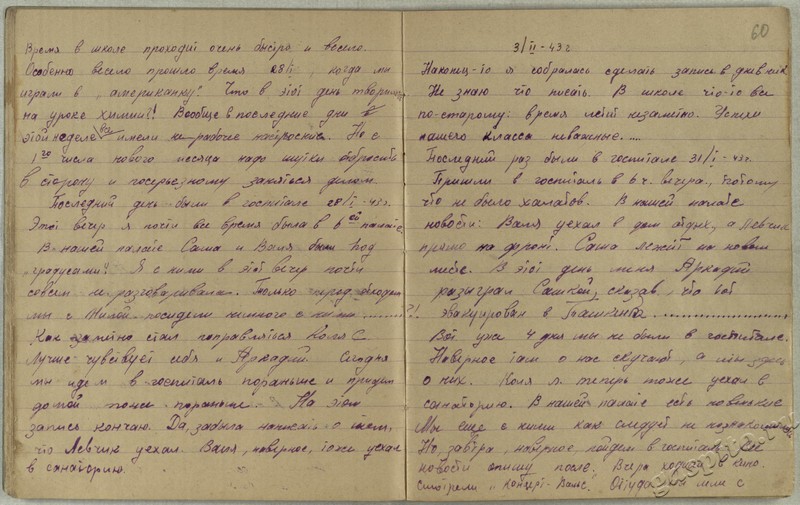 Время в школе проходит очень быстро и весело.
Особенно весело прошло время 28/I, когда мы
играли в „американку". Что в этот день творилось
на уроке химии?! Вообще в последние дни
этой неделе все имели не рабочее настроение. Но с
1го числа нового месяца надо шутки отбросить
в сторону и посерьезному заняться делом.
Последний день были в госпитале 28/I-43г.
Этот вечер я почти все время была в 6ой палате.
В нашей палате Саша и Валя были под
градусами! Я с ними в этот вечер почти
совсем не разговаривала. Только перед отходом
мы с посидели немного с ними
Как заметно стал поправляться Коля С.
Лучше чувствует себя и Аркадий. Сегодня
мы идем в госпиталь пораньше и придем
домой тоже пораньше. На этом
запись кончаю. Да, забыла написать о том,
что Левчик уехал. Валя, наверное, тоже уехал
в санаторию.
60
3/II-43г
Наконец-то я собралась сделать запись в дневник
Не знаю что писать. В школе что-то все
по-старому: время летит незаметно. Успехи
нашего класса неважные....
Последний раз были в госпитале 31/I-43г.
Пришли в госпиталь в 6 ч. вечера, потому
что не было халатов. В нашей палате
новости: Валя уехал в дом отдых, а Левчик
прямо на фронт. Саша лежит на новом
месте. В этот день меня Аркадий
разыграл Сашкой, сказав, что он
?! эвакуирован в Ташкент
Вот уже 4 дня мы не были в госпитале.
Наверное там о нас скучают, а мы здесь
о них. Коля Л. теперь тоже уехал в
санаторию. В нашей палате есть новенькие
Мы еще с ними как следует не познакомились.
Но, завтра, наверное, пойдем в госпиталь. Все
новости опишу после. Вчера ходила в кино.
Смотрели „Концерт-Вальс". Оттуда шли с